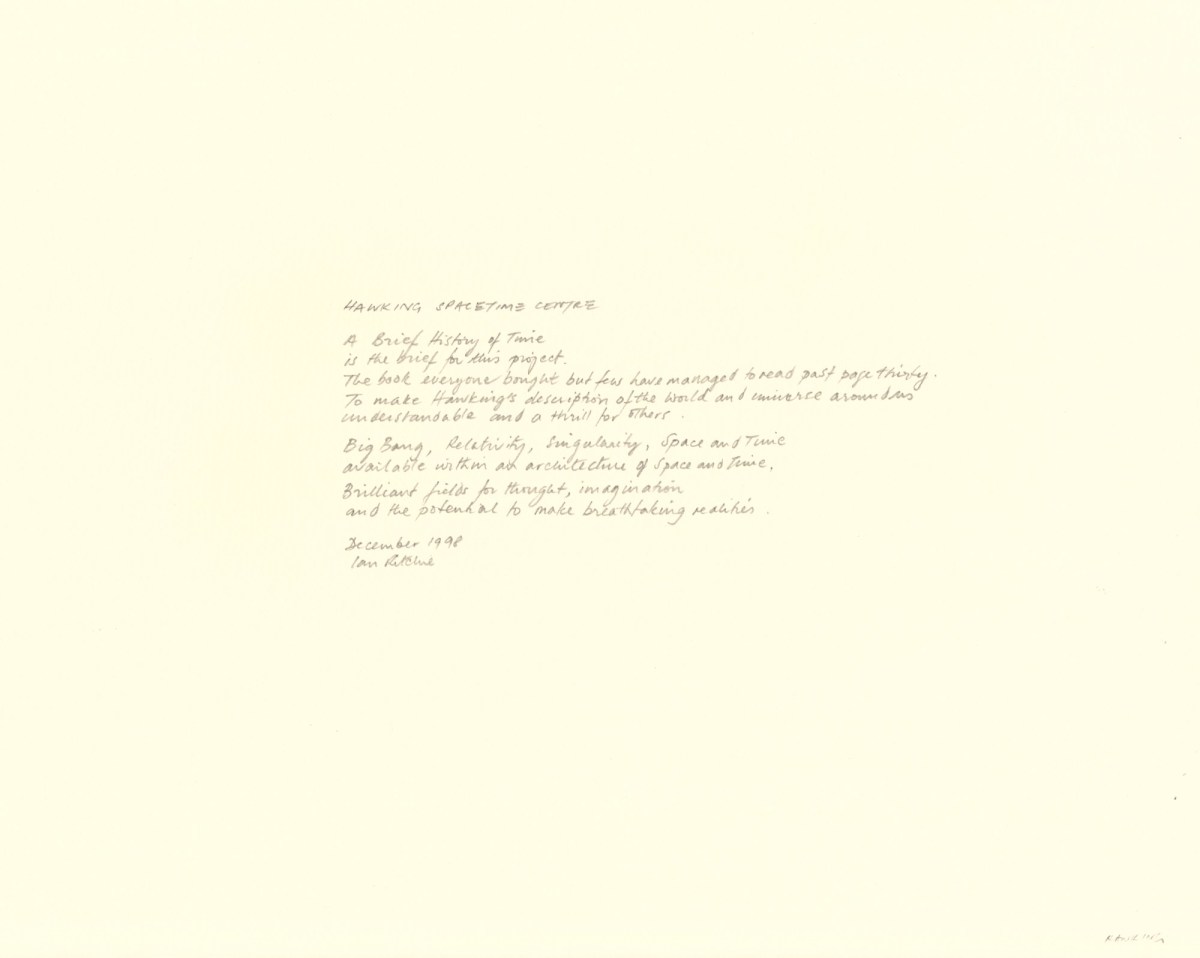 HAWKING SPACETIME CENTRE
A Brief History of Time
is the brief for this project.
The book everyone bought but few have managed to read past page thirty.
To make Hawking's description of the world and universe around us
understandable and a thrill for others.
Big Bang, Relativity, Singularity, Space and Time
available within an architecture of Space and Time.
Brilliant fields for thought, imagination
and the potential to make breathtaking realities.
December 1998
Ian Ritchie